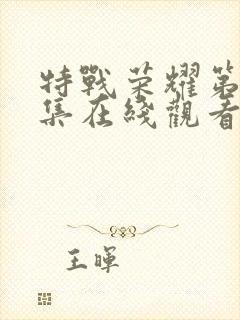 特戰荣耀第
集在綫觀看
王暉